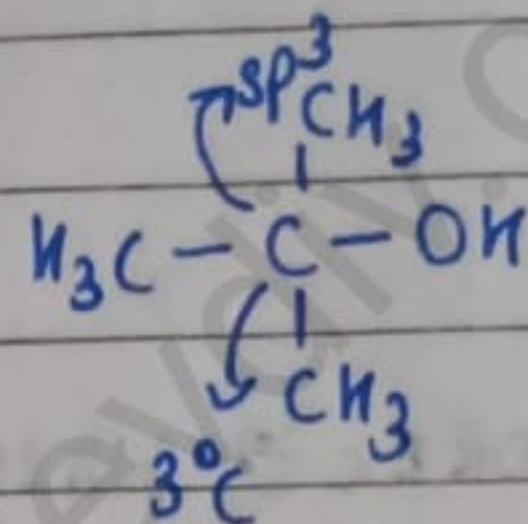 SP³
CH₃
H₃C – C – OH
CH₃
3°C